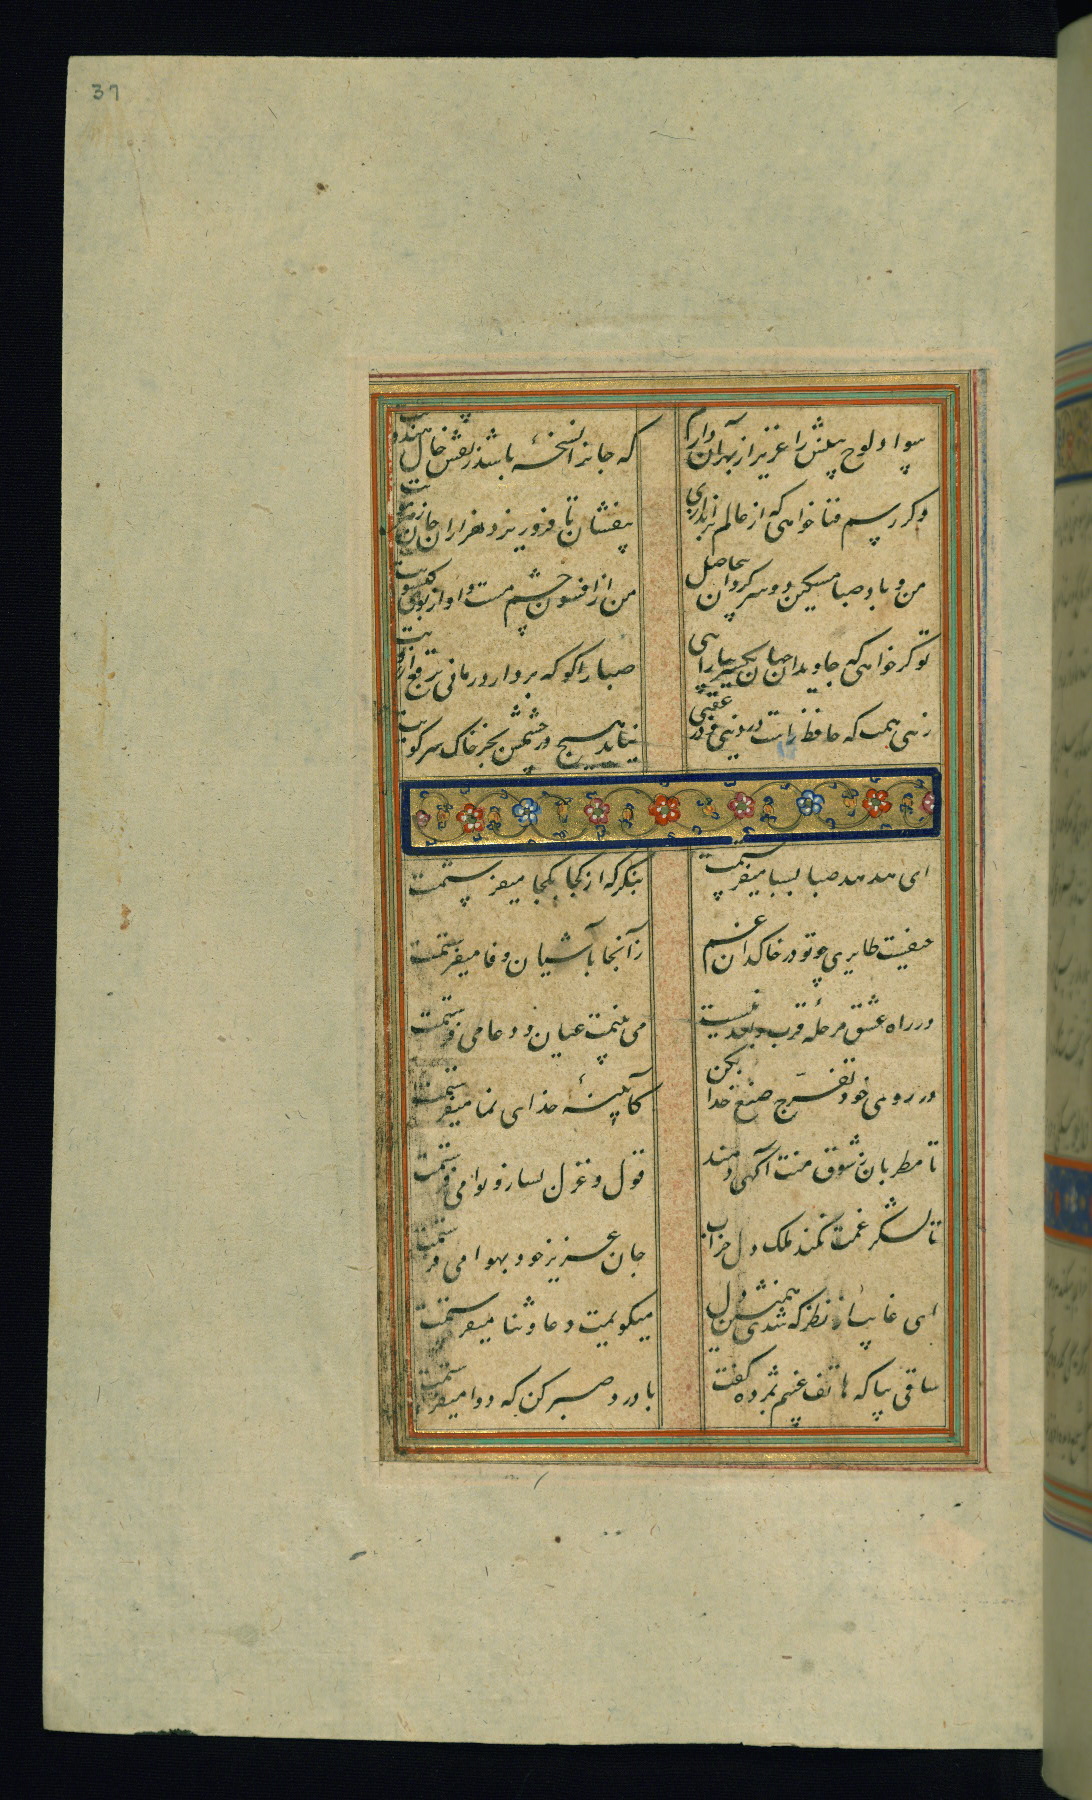 37
سواد لوح بینش را عزیز از بهر آن دارم
که جانرا نسخهٔ باشد ز نقش خال هندویت
وگر رسم فنا خواهی که از عالم براندازی
بیفشان تا فرو ریزد هزاران جان ز هر مویت
من و باد صبا مسکین دو سرگردان بیحاصل
من از افسون چشم مست و او از بوی گیسویت
تو گر خواهی که جاویدان جهان یکسر بیارایی
صبا را کو که بردارد زمانی برقع از رویت
زهی همت که حافظ راست در دنیی و در عقبی
نیاید هیچ در چشمش بجز خاک سر کویت
ای هدهد صبا بسبا میفرستمت
بنگر که از کجا بکجا میفرستمت
حیفست طایری چو تو در خاکدان غم
زآنجا بآشیان وفا میفرستمت
در راه عشق مرحلهٔ قرب و بعد نیست
می بینمت عیان و دعا می فرستمت
در روی خود تفرج صنع خدا بکن
کآیینهٔ خدای نما میفرستمت
تا مطربان ز شوق منت آگهی دهند
قول و غزل بساز و نوا می فرستمت
تا لشگر غمت نکند ملک دل خراب
جان عزیز خود بهوا می فرستمت
ای غایب از نظر که شدی همنشین دل
میگویمت دعا و ثنا میفرستمت
ساقی بیا که هاتف غیبم بمژده گفت
با درد صبر کن که دوا میفرستمت